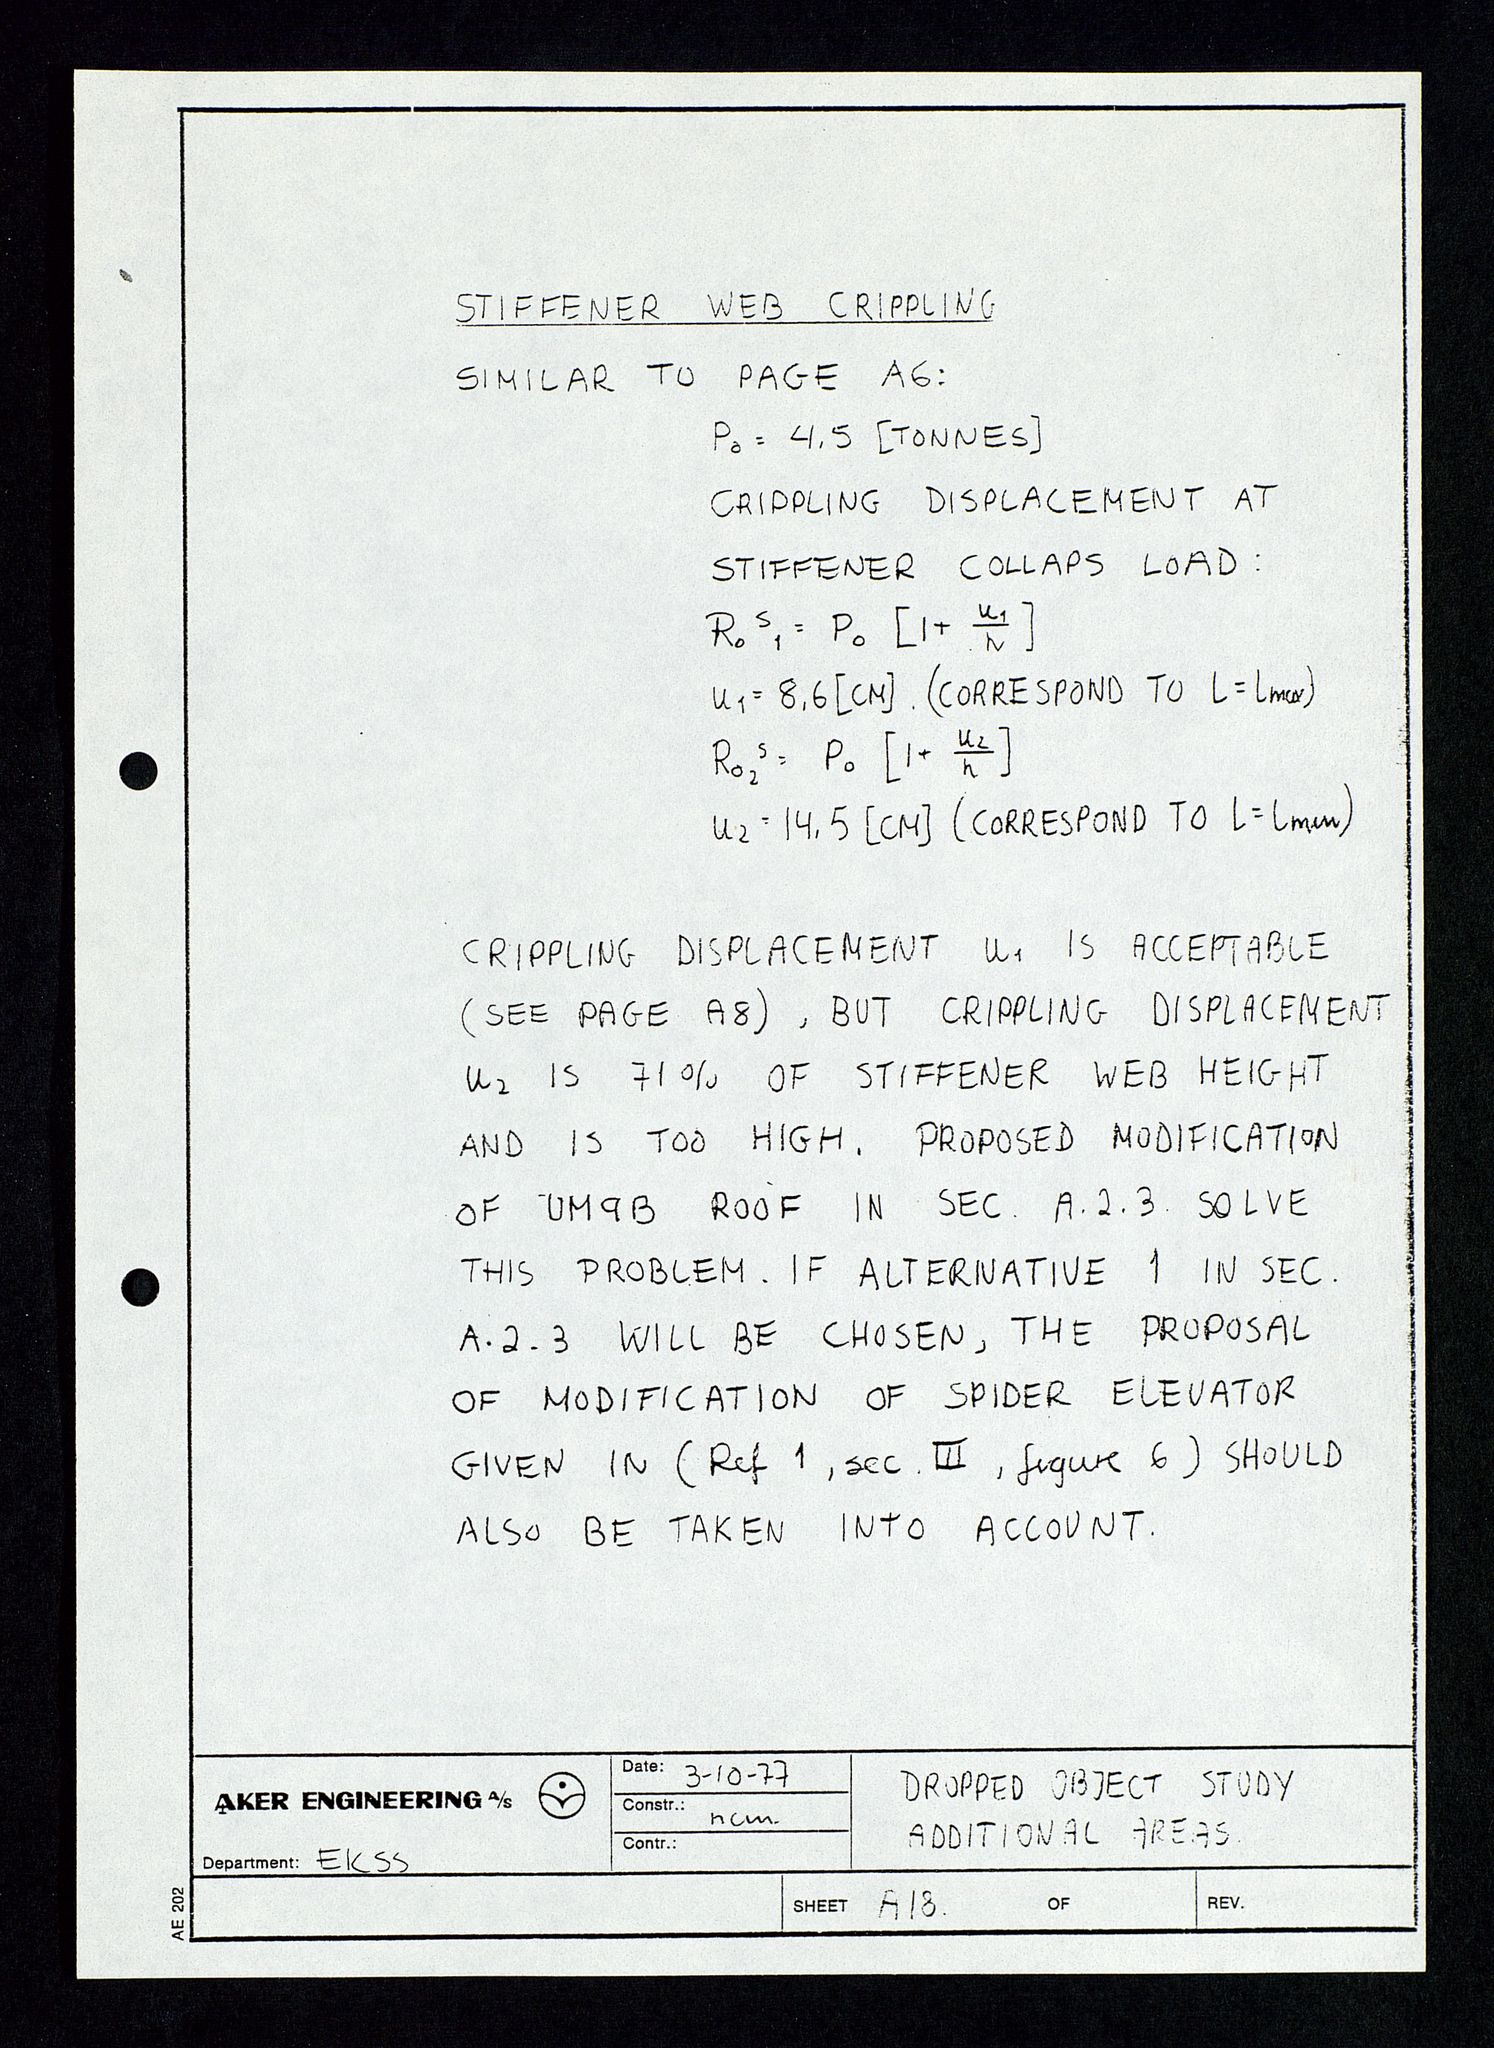 STIFFENER WEB CRIPPLING
SIMILAR TO PAGE A6:
P₀ = 4,5 [TONNES]
CRIPPLING DISPLACEMENT AT
STIFFENER COLLAPS LOAD:
R₀ˢ₁ = P₀ [1+ u₁/h]
u₁ = 8,6 [CM]. (CORRESPOND TO L = lmax)
R₀₂ˢ = P₀ [1+ u₂/h]
u₂ = 14,5 [CM] (CORRESPOND TO L = lmin)
CRIPPLING DISPLACEMENT u₁ IS ACCEPTABLE
(SEE PAGE A8), BUT CRIPPLING DISPLACEMENT
u₂ IS 71% OF STIFFENER WEB HEIGHT
AND IS TOO HIGH. PROPOSED MODIFICATION
OF UM9B ROOF IN SEC. A.2.3. SOLVE
THIS PROBLEM. IF ALTERNATIVE 1 IN SEC.
A.2.3 WILL BE CHOSEN, THE PROPOSAL
OF MODIFICATION OF SPIDER ELEVATOR
GIVEN IN (Ref 1, sec. III, figure 6) SHOULD
ALSO BE TAKEN INTO ACCOUNT.
AKER ENGINEERING A/S
Department: EKSS
Date: 3-10-77
Constr.: ncm
Contr.:
DROPPED OBJECT STUDY
ADDITIONAL AREAS.
SHEET A18. OF
REV.
AE 202